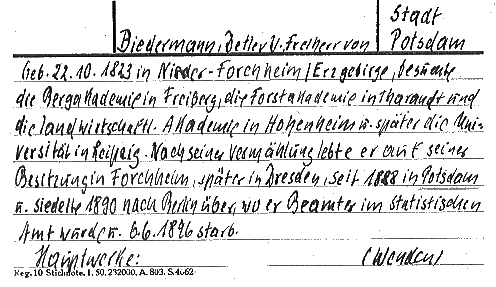 Stadt
Biedermann, Detlev V. Freiherr von Potsdam
Geb. 22.10.1823 in Nieder-Forchheim/Erzgebirge, besuchte
die Bergakademie in Freiberg, die Forstakademie in Tharandt und
die landwirtschaftl. Akademie in Hohenheim u. später die Uni-
versität in Leipzig. Nach seiner Vermählung lebte er auf seiner
Besitzung in Forchheim, später in Dresden, seit 1888 in Potsdam
u. siedelte 1890 nach Berlin über, wo er Beamter im statistischen
Amt wurde u. 6.6.1896 starb.
Hauptwerke: (Wenden)
Reg. 10 Stichnote. I. 50. 232000. A. 803. S. 4662